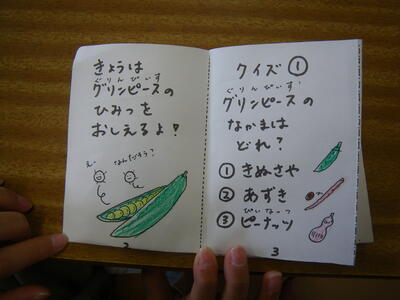 きょうは
ぐりんぴいす
グリンピースの
ひみつを
おしえるよ？
えー
なんだろう？
2
クイズ①
ぐりんぴいす
グリンピースの
なかまは
どれ？
① きぬさや
② あずき
ぴいなっつ
③ ピーナッツ
3